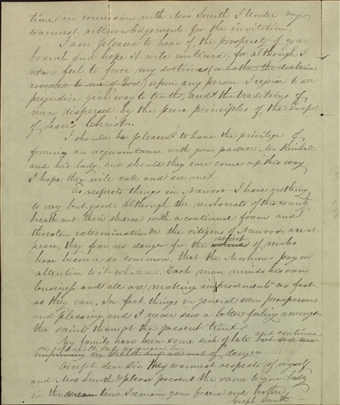 time in communion with Mrs Smith I tender my
warmest acknowledgement for the invitation.
I am pleased to hear of the prosperity of your
branch and hope it will continue, for although I
never feel to force my doctrine
upon any person I rejoice to see
prejudice give way to truth, and the traditions of
men dispersed by the pure principles of the Gospel
of Jesus Christ.
I should be pleased to have the privilege of
forming an acquaintance with your
and his lady, and should they ever come up this way
I hope they will call and see me.
As respects things in Nauvoo I have nothing
to say but good, although the mobocrats of this county
breath out their shame with a continual foam and
threaten extermination &c the citizens of Nauvoo are at
peace, they fear no danger for the report of mobs
has become so common, that the Mormons pay no
attention to it whatever. Each man minds his own
business and all are making improvements as fast
as they can, in fact things in general seem prosperous
and pleasing and I never saw a better feeling amongst
the saints than at the present time.
My family have been some sick of late and continue
Accept dear Sir the warmest respects of myself
and Mrs Smith & please present the same to your lady
in the time I remain your friend and brother
Joseph Smith